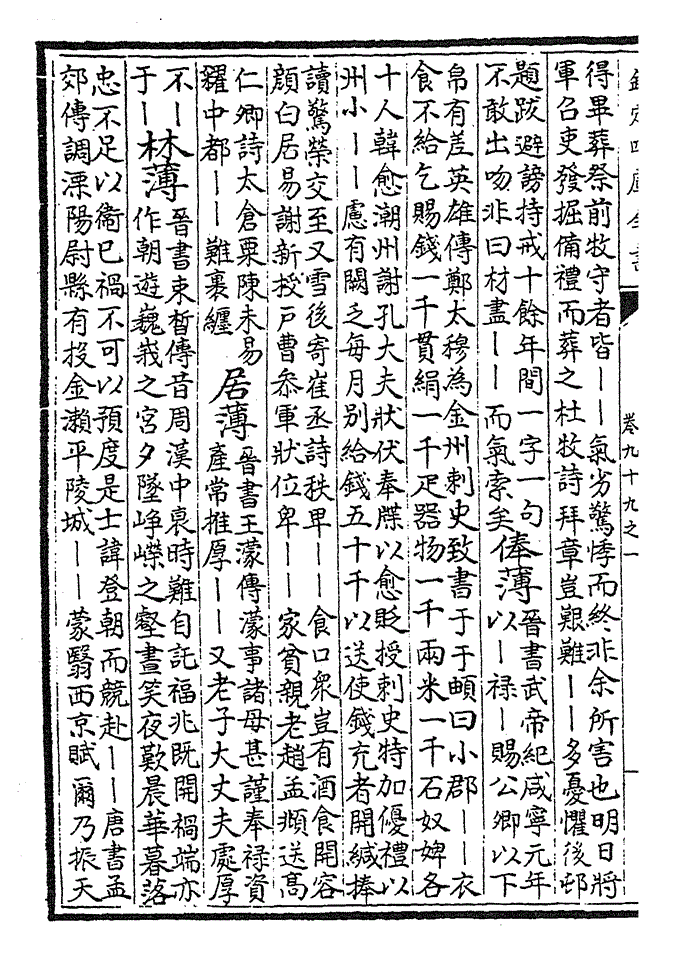 欽定四庫全書
卷九十九之一
得畢葬祭前牧守者皆——氣劣驚悸而終非余所害也明日將
軍召吏發掘備禮而葬之杜牧詩拜章豈艱難——多憂懼後邨
題跋避謗持戒十餘年間一字一句
不敢出吻非曰材盡——而氣索矣
俸薄
晉書武帝紀咸寧元年
以—祿—賜公卿以下
帛有差英雄傳鄭太穆為金州刺史致書于于頔曰小郡——衣
食不給乞賜錢一千貫絹一千疋器物一千兩米一千石奴婢各
十人韓愈潮州謝孔大夫狀伏奉牒以愈貶授刺史特加優禮以
州小——慮有闕乏每月別給錢五十千以送使錢充者開緘捧
讀驚榮交至又雪後寄崔丞詩秩卑——食口衆豈有酒食開容
顔白居易謝新授戶曹參軍狀位卑——家貧親老趙孟頫送高
仁卿詩太倉粟陳未易
糴中都——難裹纏
居薄
晉書王濛傳濛事諸母甚謹奉祿資
產常推厚——又老子大丈夫處厚
不—
于—
林薄
晉書束晳傳昔周漢中衰時難自託福兆既開禍端亦
作朝遊巍峩之宮夕墜崢嶸之壑晝笑夜歎晨華暮落
忠不足以衞已禍不可以預度是士諱登朝而競赴——唐書孟
郊傳調溧陽尉縣有投金瀨平陵城——蒙翳西京賦爾乃振天